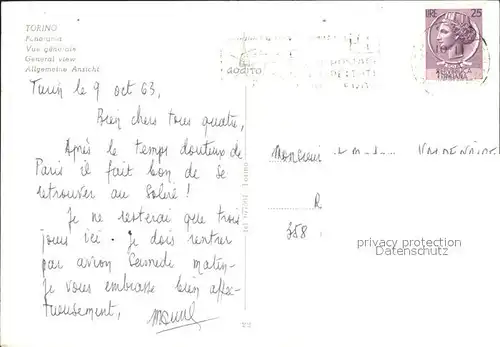 TORINO
Panorama
Vue générale
General view
Allgemeine Ansicht
LIRE 25
Turin le 9 oct 63,
Bien chers tous quatre,
Après le temps douteux de
Paris il fait bon de se
retrouver au Soleil !
Je ne resterai que trois
jours ici. Je dois rentrer
par avion Samedi matin.
Je vous embrasse bien affec-
tueusement,
Monsieur et Madame VALDENAIRE
R
358
privacy protection
Datenschutz